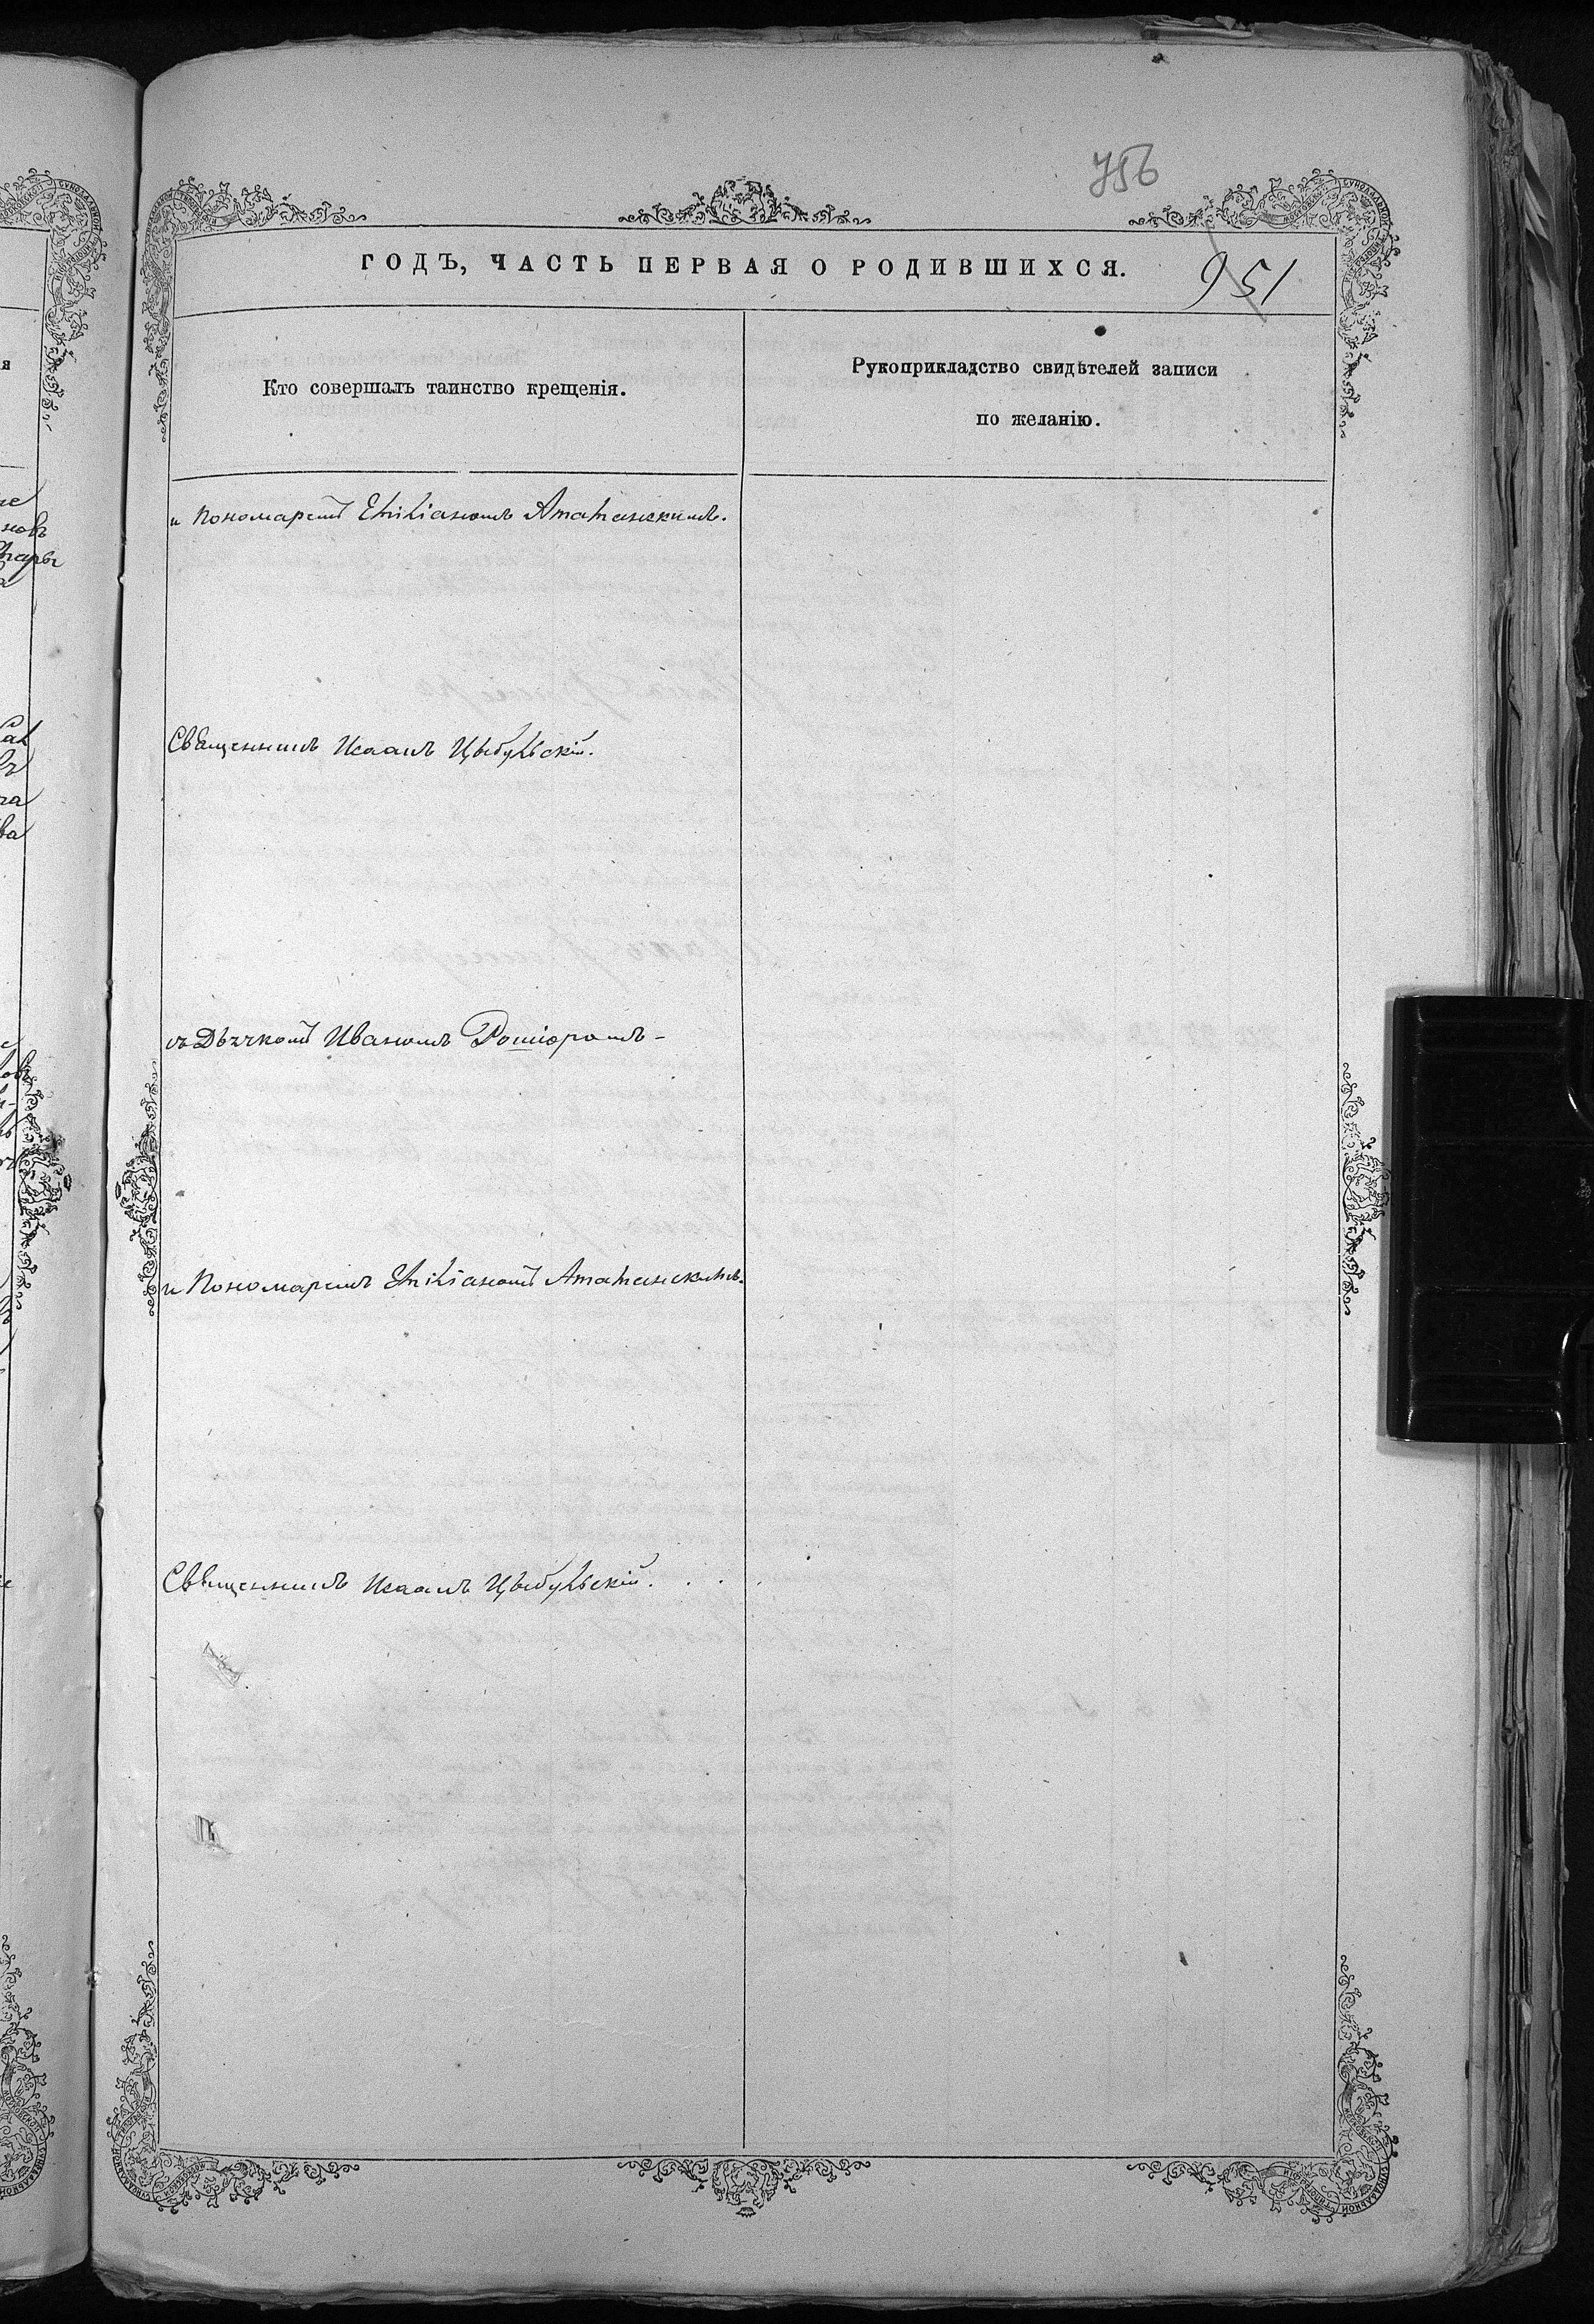 756
951
ГОДЪ, ЧАСТЬ ПЕРВАЯ О РОДИВШИХСЯ.
Кто совершалъ таинство крещенія.
Рукоприкладство свидѣтелей записи
по желанію.
и Пономаремъ Емиліаномъ Аматанскимъ.
Священникъ Исаакъ Цыбульскій.
съ Дьячкомъ Иваномъ Рошіоромъ -
и Пономаремъ Емиліаномъ Аматанскимъ.
Священникъ Исаакъ Цыбульскій.